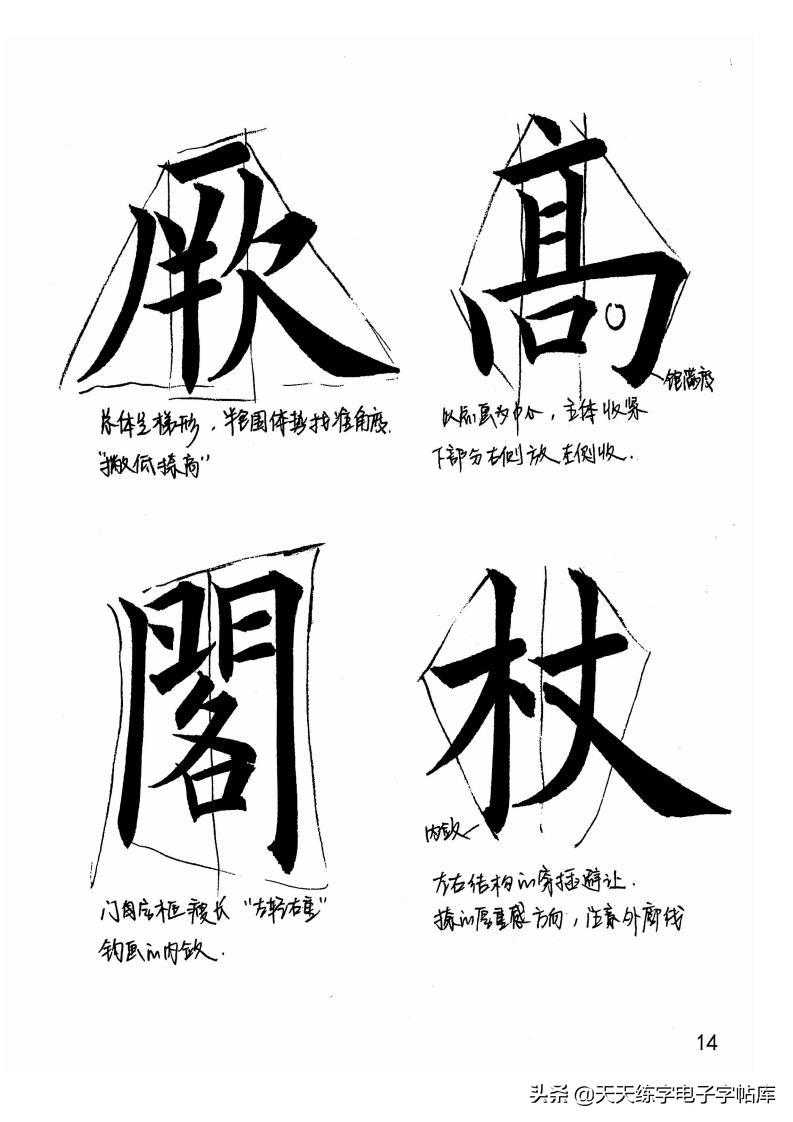 厥
总体呈梯形，半包围体势找准角度.
“撇低捺高”
高
饱满度
以点画为中心，主体收紧
下部分右侧放左侧收.
閣
门字框瘦长“左轻右重”
钩画的内敛.
杖
内敛
左右结构的穿插避让.
捺的厚重感方向，注意外廓线
14
头条 @天天练字电子字帖库